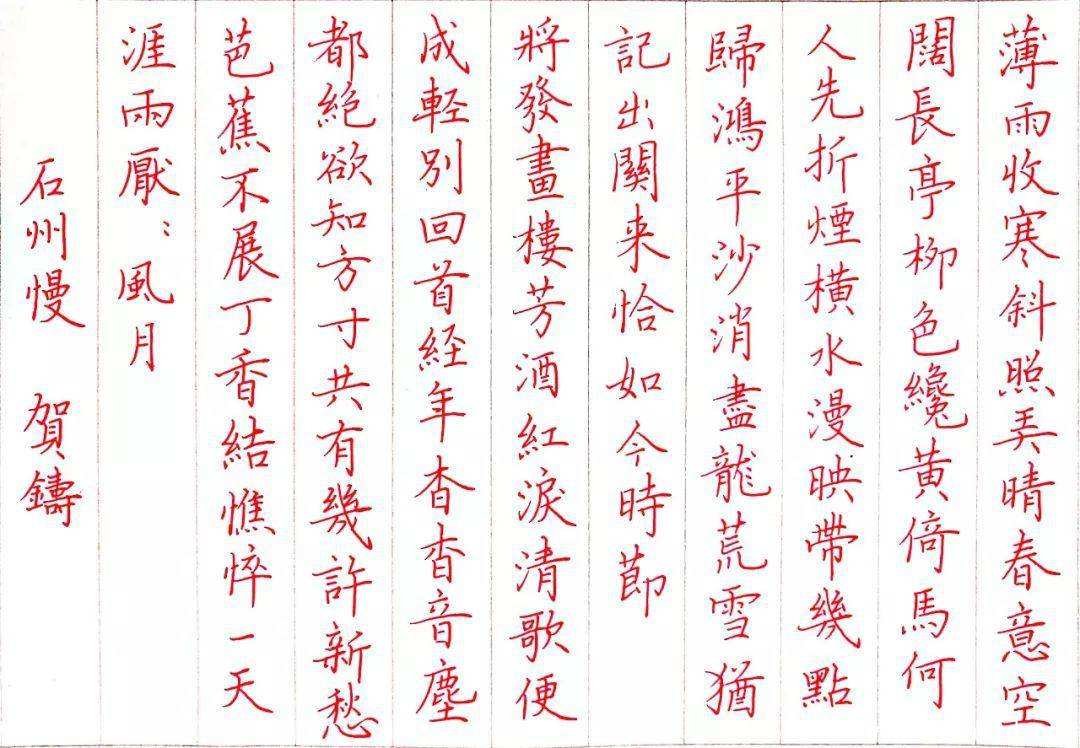 薄雨收寒斜照弄晴春意空
闊長亭柳色纔黃倚馬何
人先折煙橫水漫映帶幾點
歸鴻平沙消盡龍荒雪猶
記出關来恰如今時節
將發畫樓芳酒紅淚清歌便
成軽別回首経年杳杳音塵
都絕欲知方寸共有幾許新愁
芭蕉不展丁香結憔悴一天
涯兩厭：風月
石州慢 賀鑄